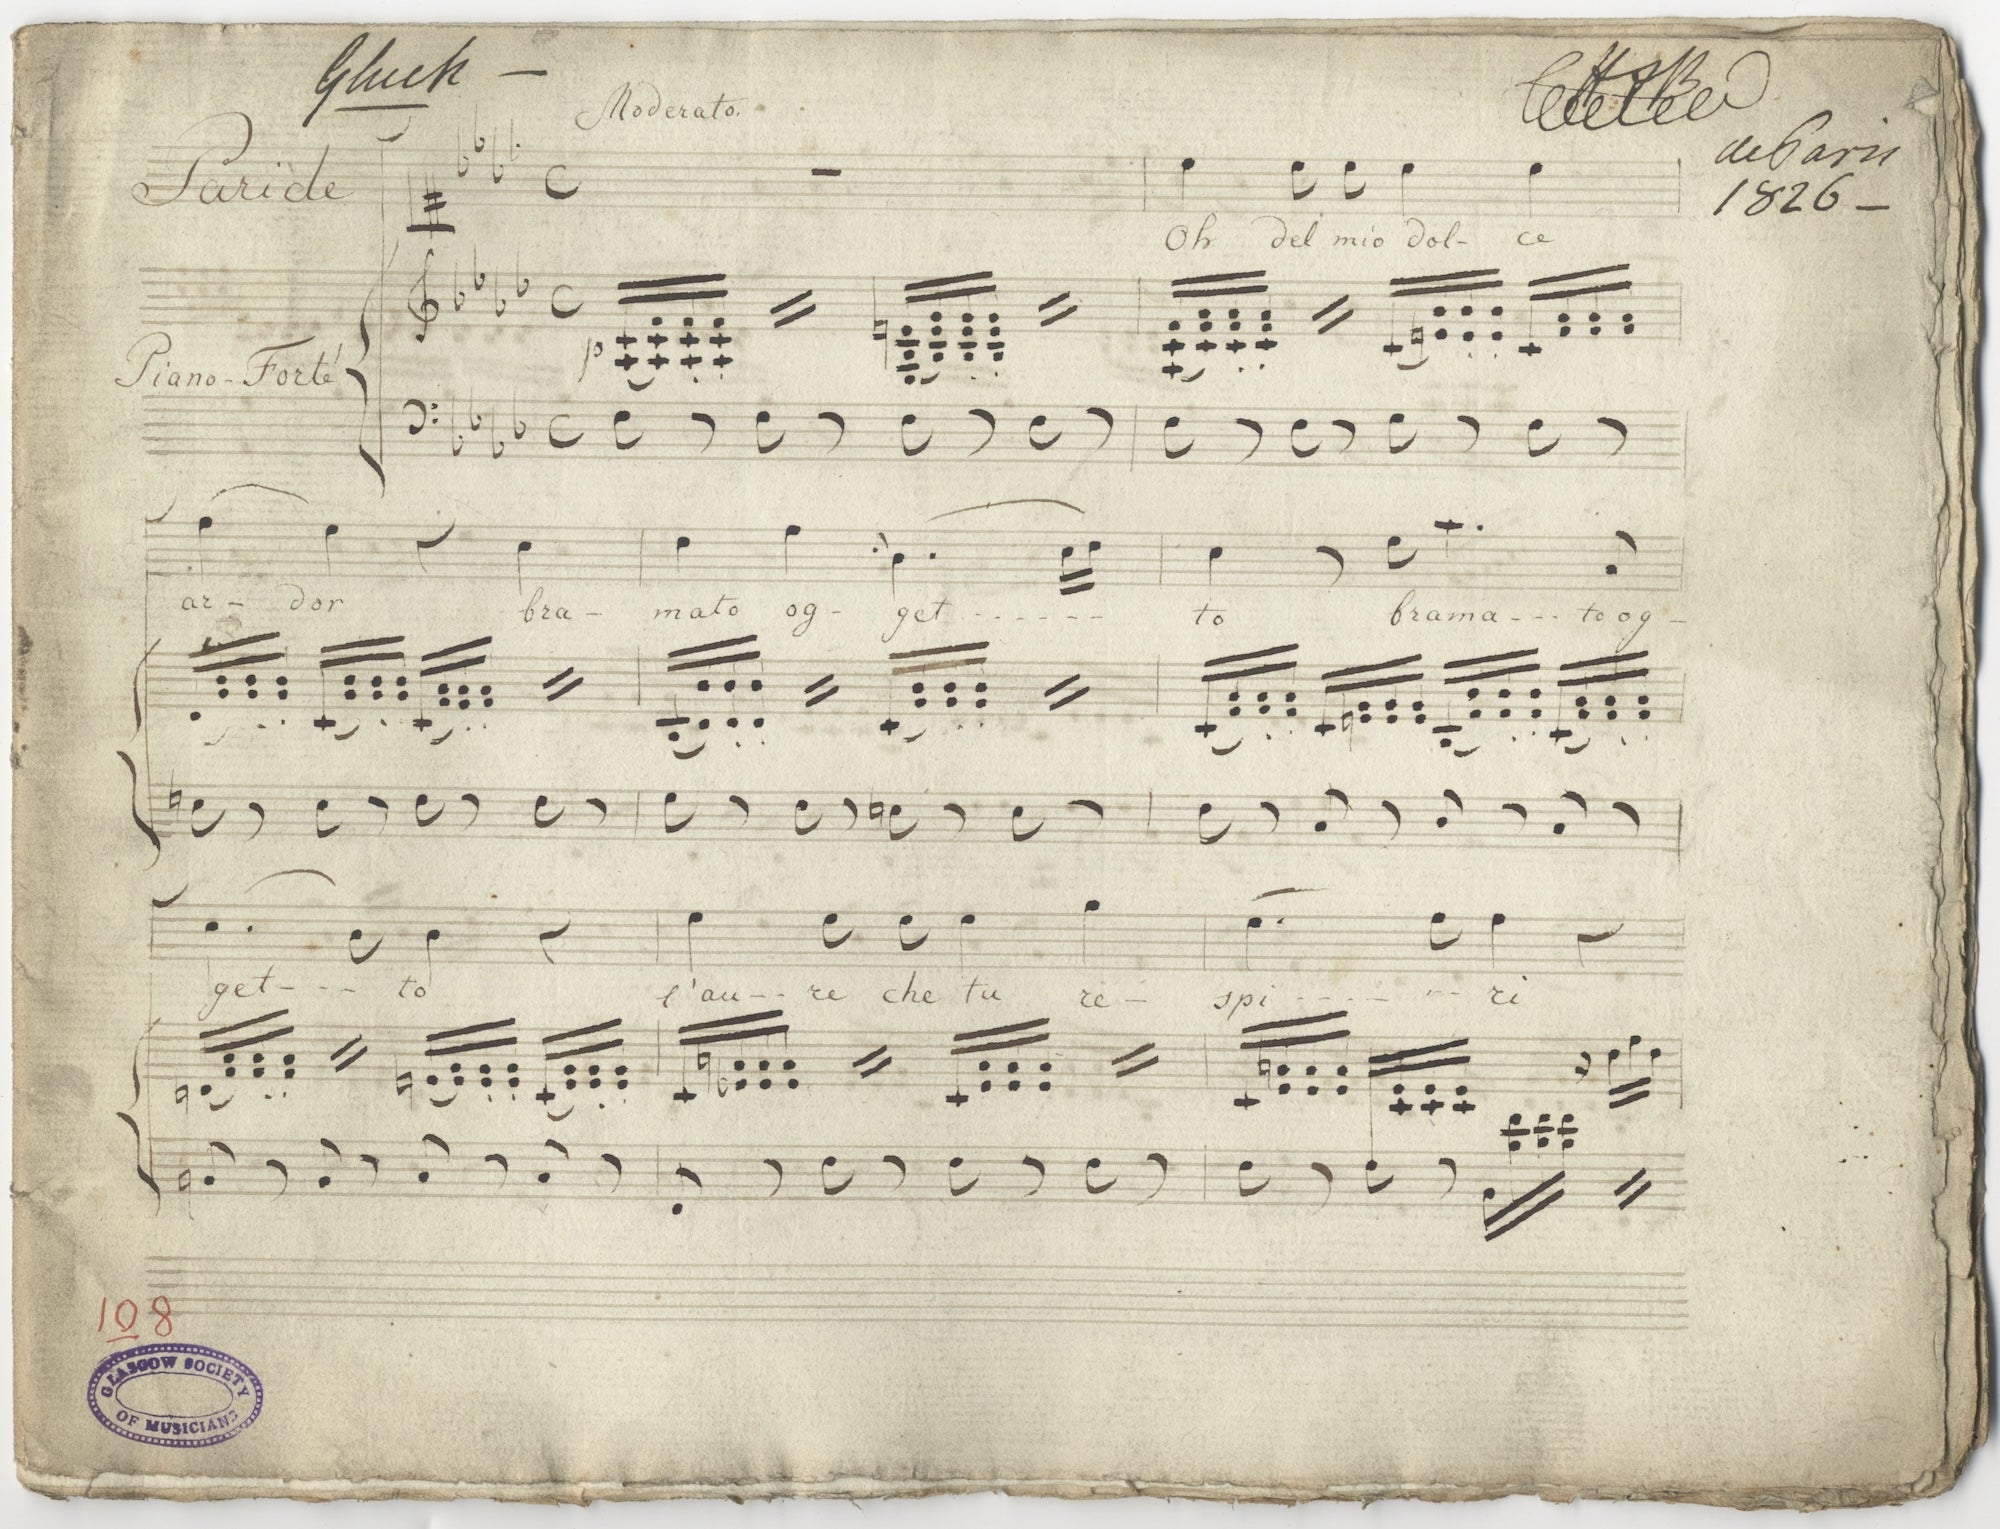 Gluck –
Moderato.
de Paris
1826 –
Paride
Oh del mio dol- ce
p
Piano-Forté
ar- dor bra- mato og- get - - - - - - to brama - - - to og-
get- - - - to l'au- - - re che tu re- spi - - - - - - - ri
108
GLASGOW SOCIETY
OF MUSICIANS